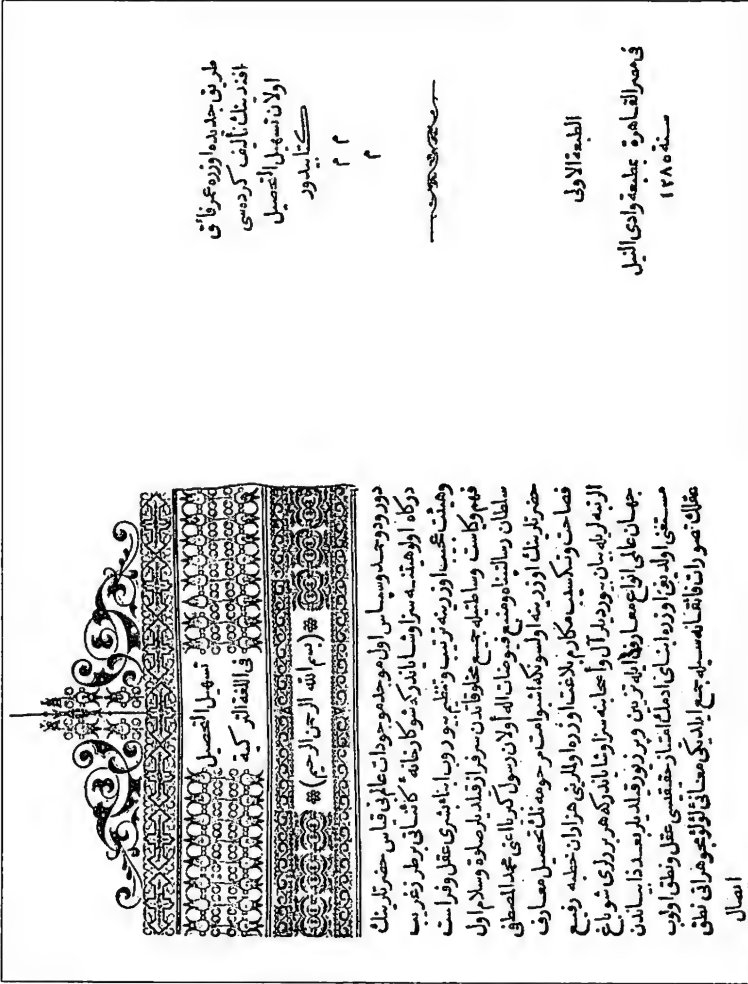 طريق جديده اوزره عمر فائق
افندينك تأليف كرده سى
اولان تسهيل التحصيل
كتابيدور
م م
م
الطبعة الاولى
فى مصر القاهرة بمطبعة وادى النيل
سنة ١٢٨٥
تسهيل التحصيل
فى اللغة التركية
(بسم الله الرحمن الرحيم)
درود و حمد وسپاس اول موجد موجودات عالم فى قاس حضرتلرينك
دركاه اوزرينه سزاو شاياندركه شو كارخانه كائناتى بر طرز غريب
وهيئت عجيب اوزرينه ترتيب وتنظيم بيوروب ابناء بشرى عقل وفراست
فهم وكياست وساطتيله جميع مخلوقاتدن سرفراز قلدى صلاة وسلام اول
سلطان رسالتپناه ومنبع فيوضات اله اولان رسول كبريا اعنى محمد المصطفى
حضرتلرينك اوزرينه اولسونكه امت مرحومه نك تحصيل معارف
فصاحت وكسب مكارم بلاغت اوزره اولملرينى هزاران خطبه رفيع
الرتبه لريله بيان بيورديلر آل واصحابنه سزاو شاياندركه هر برلرى شو باغ
جهان عالى انواع معارف ايله تزيين وپرزيور قلديلر بعد ذا بياندن
مستغنى اولديغى اوزره انسانى ادملك امتياز حقيقيسى عقل ونطق اولوب
عقلك تصورات فائقانه سيله جمع ايلديكى معانئ لؤلؤ جوهرانى نطق
اتصال